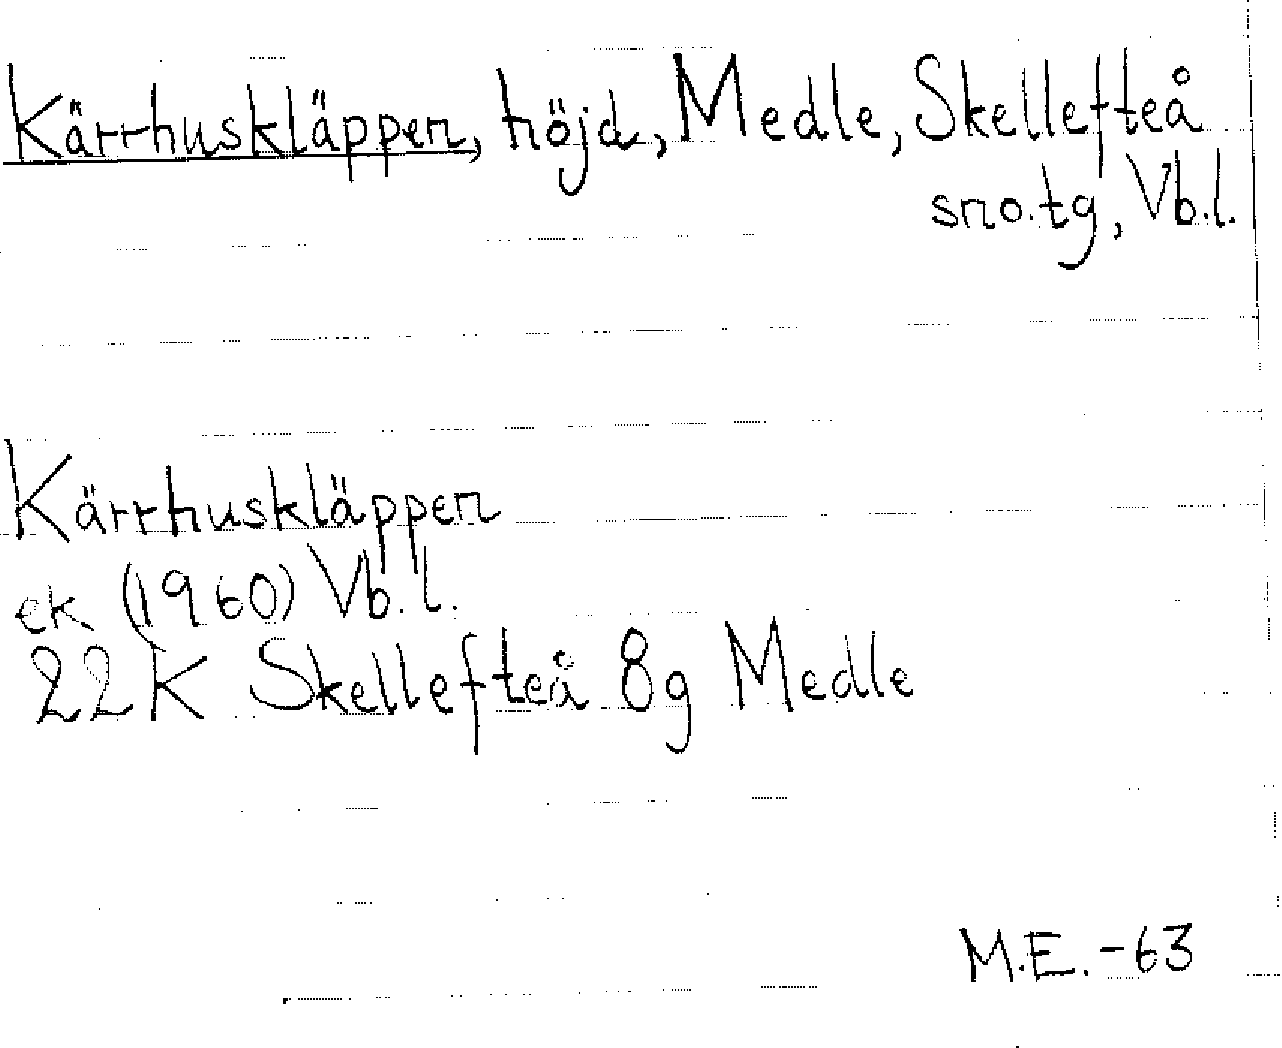 Kärrhuskläppen, höjd, Medle, Skellefteå
sno.tg, Vb.l.
Kärrhuskläppen
ek (1960) Vb.l.
22K Skellefteå 8g Medle
M.E. -63